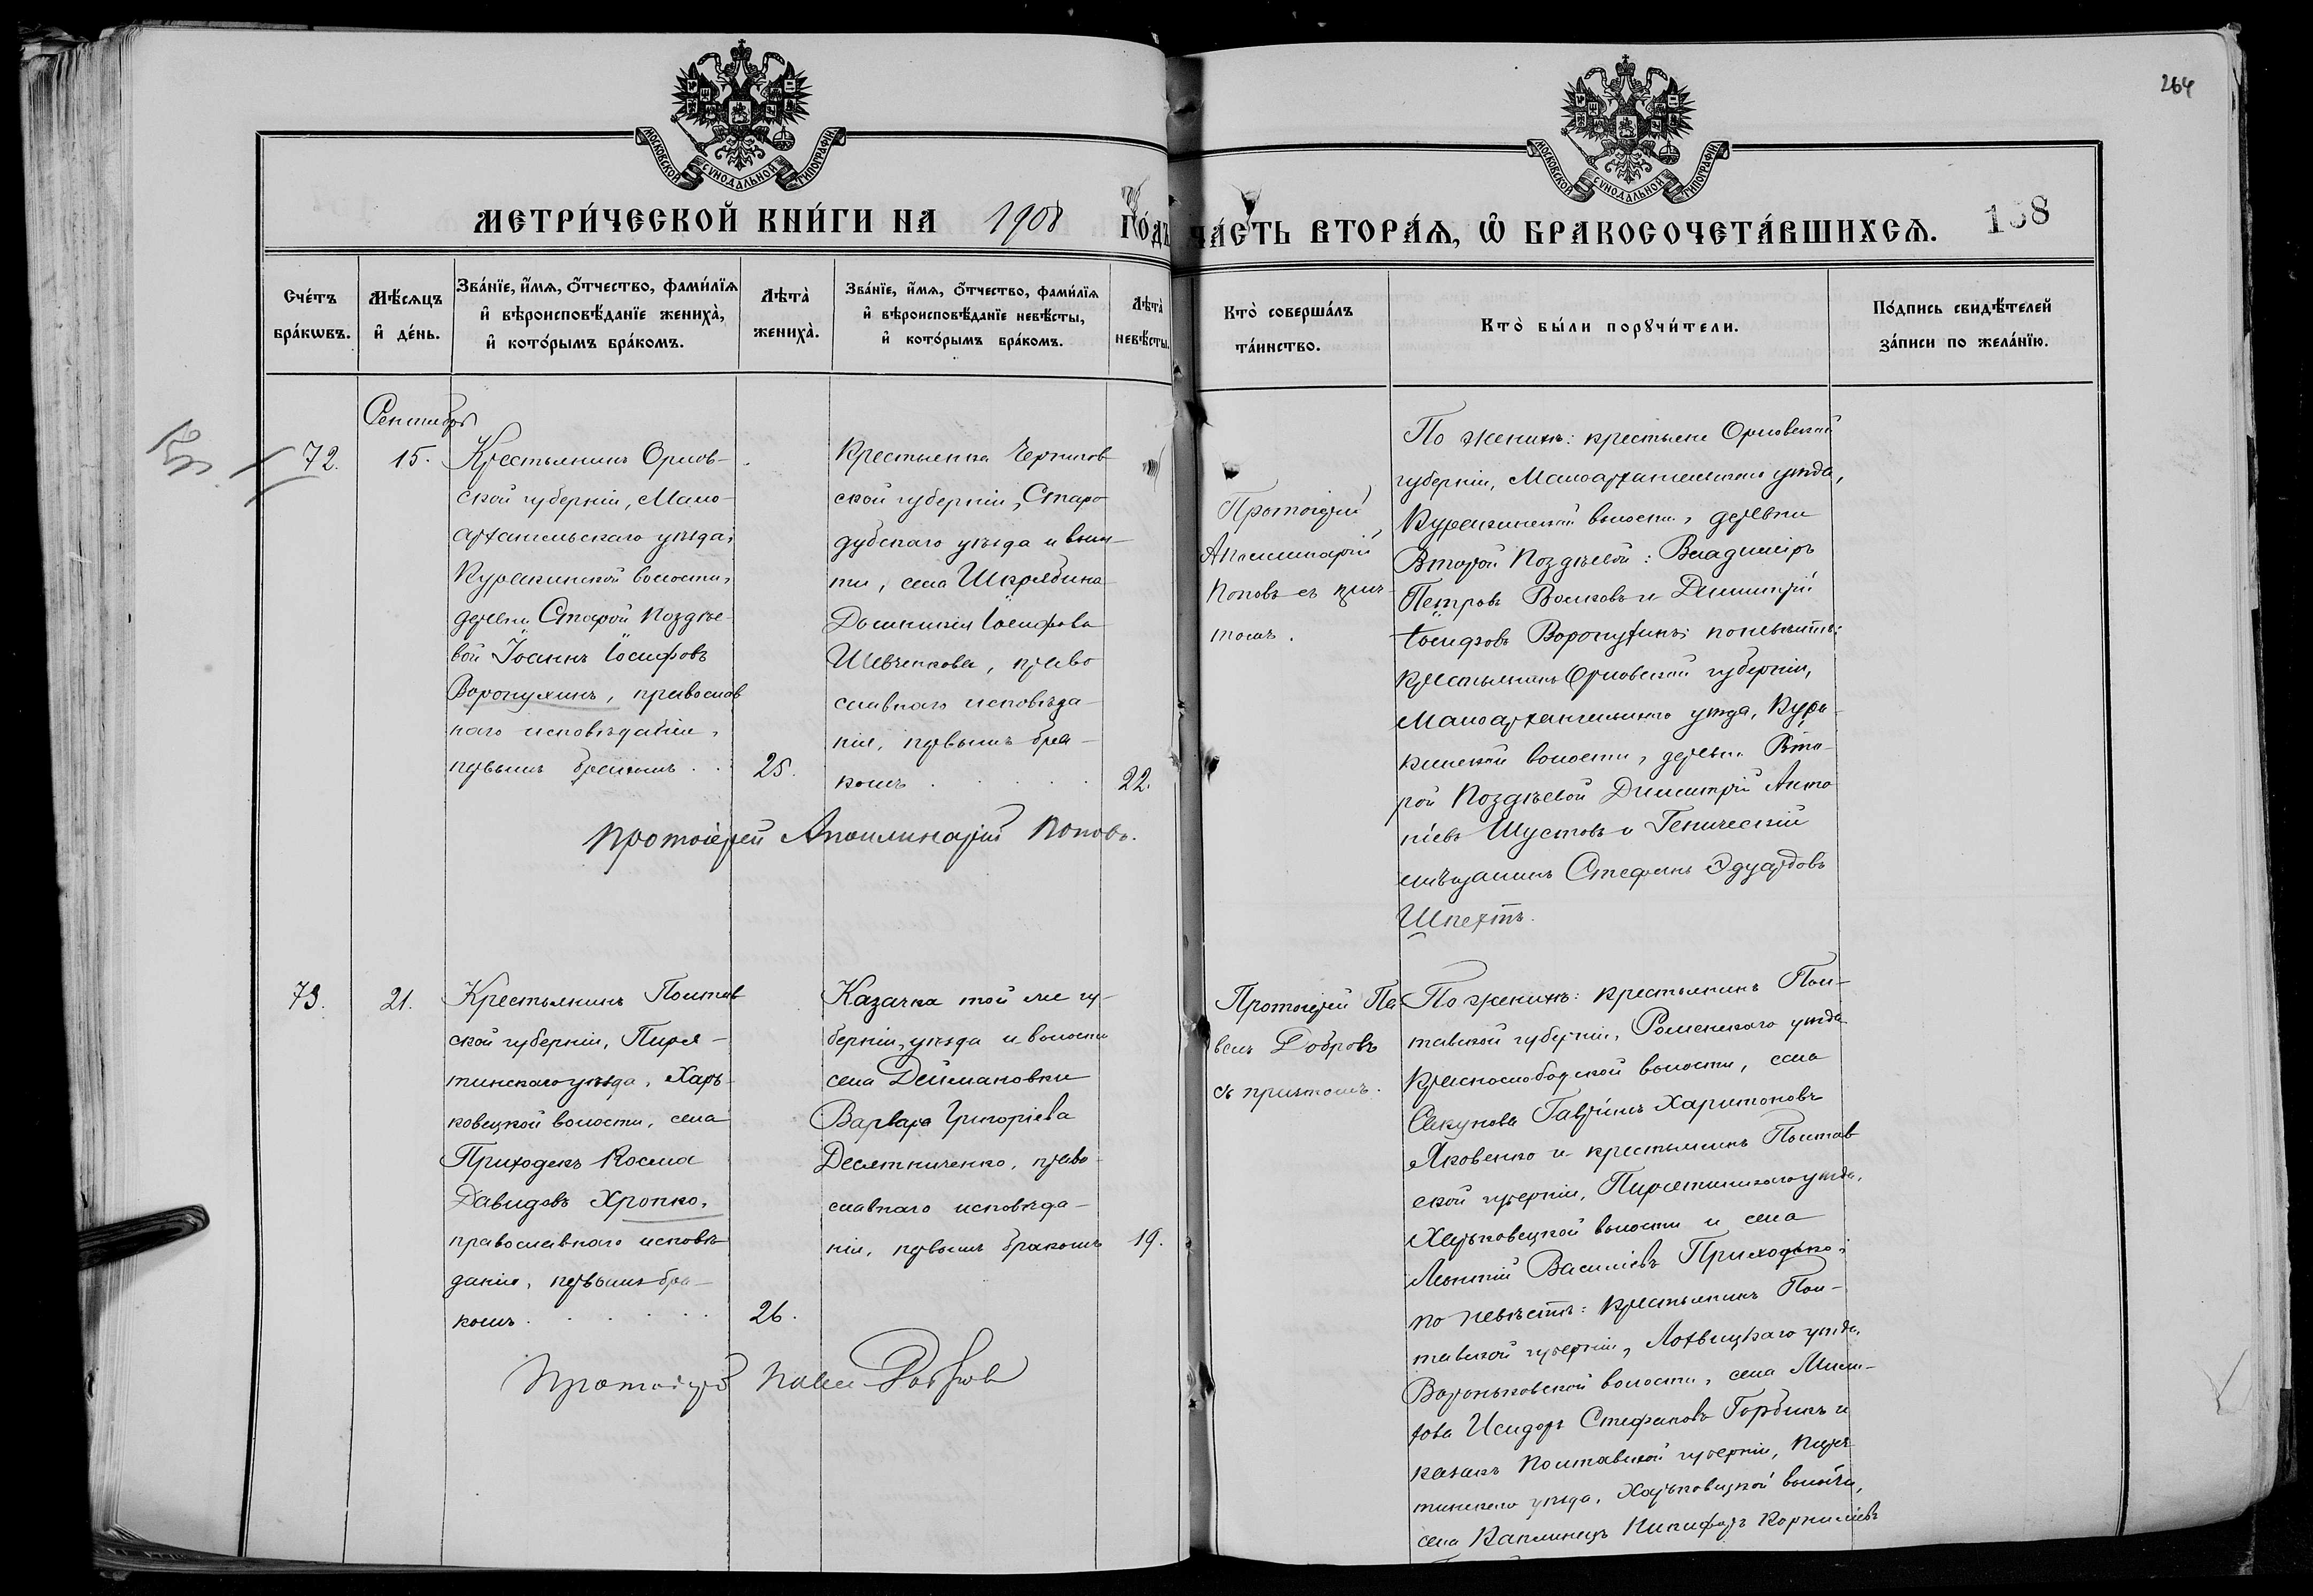 264
МОСКОВСКОЙ СѴНОДАЛЬНОЙ ТИПОГРАФІИ
МОСКОВСКОЙ СѴНОДАЛЬНОЙ ТИПОГРАФІИ
МЕТРИ́ЧЕСКОЙ КНИ́ГИ НА 1908 ГО́ДЪ
ЧА́СТЬ ВТОРА́Ѧ, Ѡ҆ БРАКОСОЧЕТА́ВШИХСѦ.
158
Сче́тъ
бра́кѡвъ.
Мѣ́сѧцъ
и҆ де́нь.
Зва́нїе, и҆́мѧ, ѻ҆́тчество, фами́лїѧ
и҆ вѣроисповѣ́данїе жениха̀,
и҆ кото́рымъ бра́комъ.
Лѣта̀
жениха̀.
Зва́нїе, и҆́мѧ, ѻ҆́тчество, фами́лїѧ
и҆ вѣроисповѣ́данїе невѣ́сты,
и҆ кото́рымъ бра́комъ.
Лѣта̀
невѣ́сты.
Кто̀ соверша́лъ
та́инство.
Кто̀ бы́ли порꙋчи́тели.
По́дпись свидѣ́телей
за́писи по жела́нїю.
Сентябрь
72.
15.
Крестьянинъ Орлов-
ской губерніи, Мало-
архангельскаго уѣзда,
Куракинской волости,
деревни Старой Поздѣе-
вой Іоаннъ Іосифовъ
Воропухинъ, православ
наго исповѣданія,
первымъ бракомъ
25.
Крестьянка Чернигов
ской губерніи, Старо
дубскаго уѣзда и волос-
ти, села Шкрябина
Домникія Іосифова
Шевченкова, право
славнаго исповѣда-
нія, первымъ бра-
комъ
22.
Протоіерей Аполлинарій Поповъ.
Протоіерей
Аполлинарій
Поповъ съ прич-
томъ.
По женихѣ: крестьяне Орловской
губерніи, Малоархангельскаго уѣзда,
Куракинской волости, деревни
Второй Поздѣевой: Владиміръ
Петровъ Волковъ и Димитрій
Іосифовъ Воропухинъ; по невѣстѣ:
крестьянинъ Орловской губерніи,
Малоархангельскаго уѣзда, Кура-
кинской волости, деревни Вто-
рой Поздѣевой Димитрій Анто
ніевъ Шустовъ и Геническій
мѣщанинъ Стефанъ Эдуардовъ
Шпехтъ.
73.
21.
Крестьянинъ Полтав
ской губерніи, Пиря-
тинскаго уѣзда, Харь-
ковецкой волости, села
Приходекъ Косма
Давидовъ Хропко,
православнаго исповѣ
данія, первымъ бра-
комъ
26.
Казачка той же гу-
берніи, уѣзда и волости
села Деймановки
Варвара Григоріева
Десятниченко, право-
славнаго исповѣда-
нія, первымъ бракомъ
19.
Протоіерей Павелъ Добровъ
Протоіерей Па-
велъ Добровъ
съ причтомъ.
По женихѣ: крестьянинъ Пол-
тавской губерніи, Роменскаго уѣзда
Краснослободской волости, села
Секунова Гавріилъ Харитоновъ
Яковенко и крестьянинъ Полтав
ской губерніи, Пирятинскаго уѣзда,
Харьковецкой волости и села
Леонтій Василіевъ Приходько;
по невѣстѣ: крестьянинъ Пол-
тавской губерніи, Лохвицкаго уѣзда,
Вороньковской волости, села
Исидоръ Стефановъ Горбикъ и
казакъ Полтавской губерніи, Пиря-
тинскаго уѣзда, Харьковецкой волости,
села Каплинецъ Никифоръ Корниліевъ